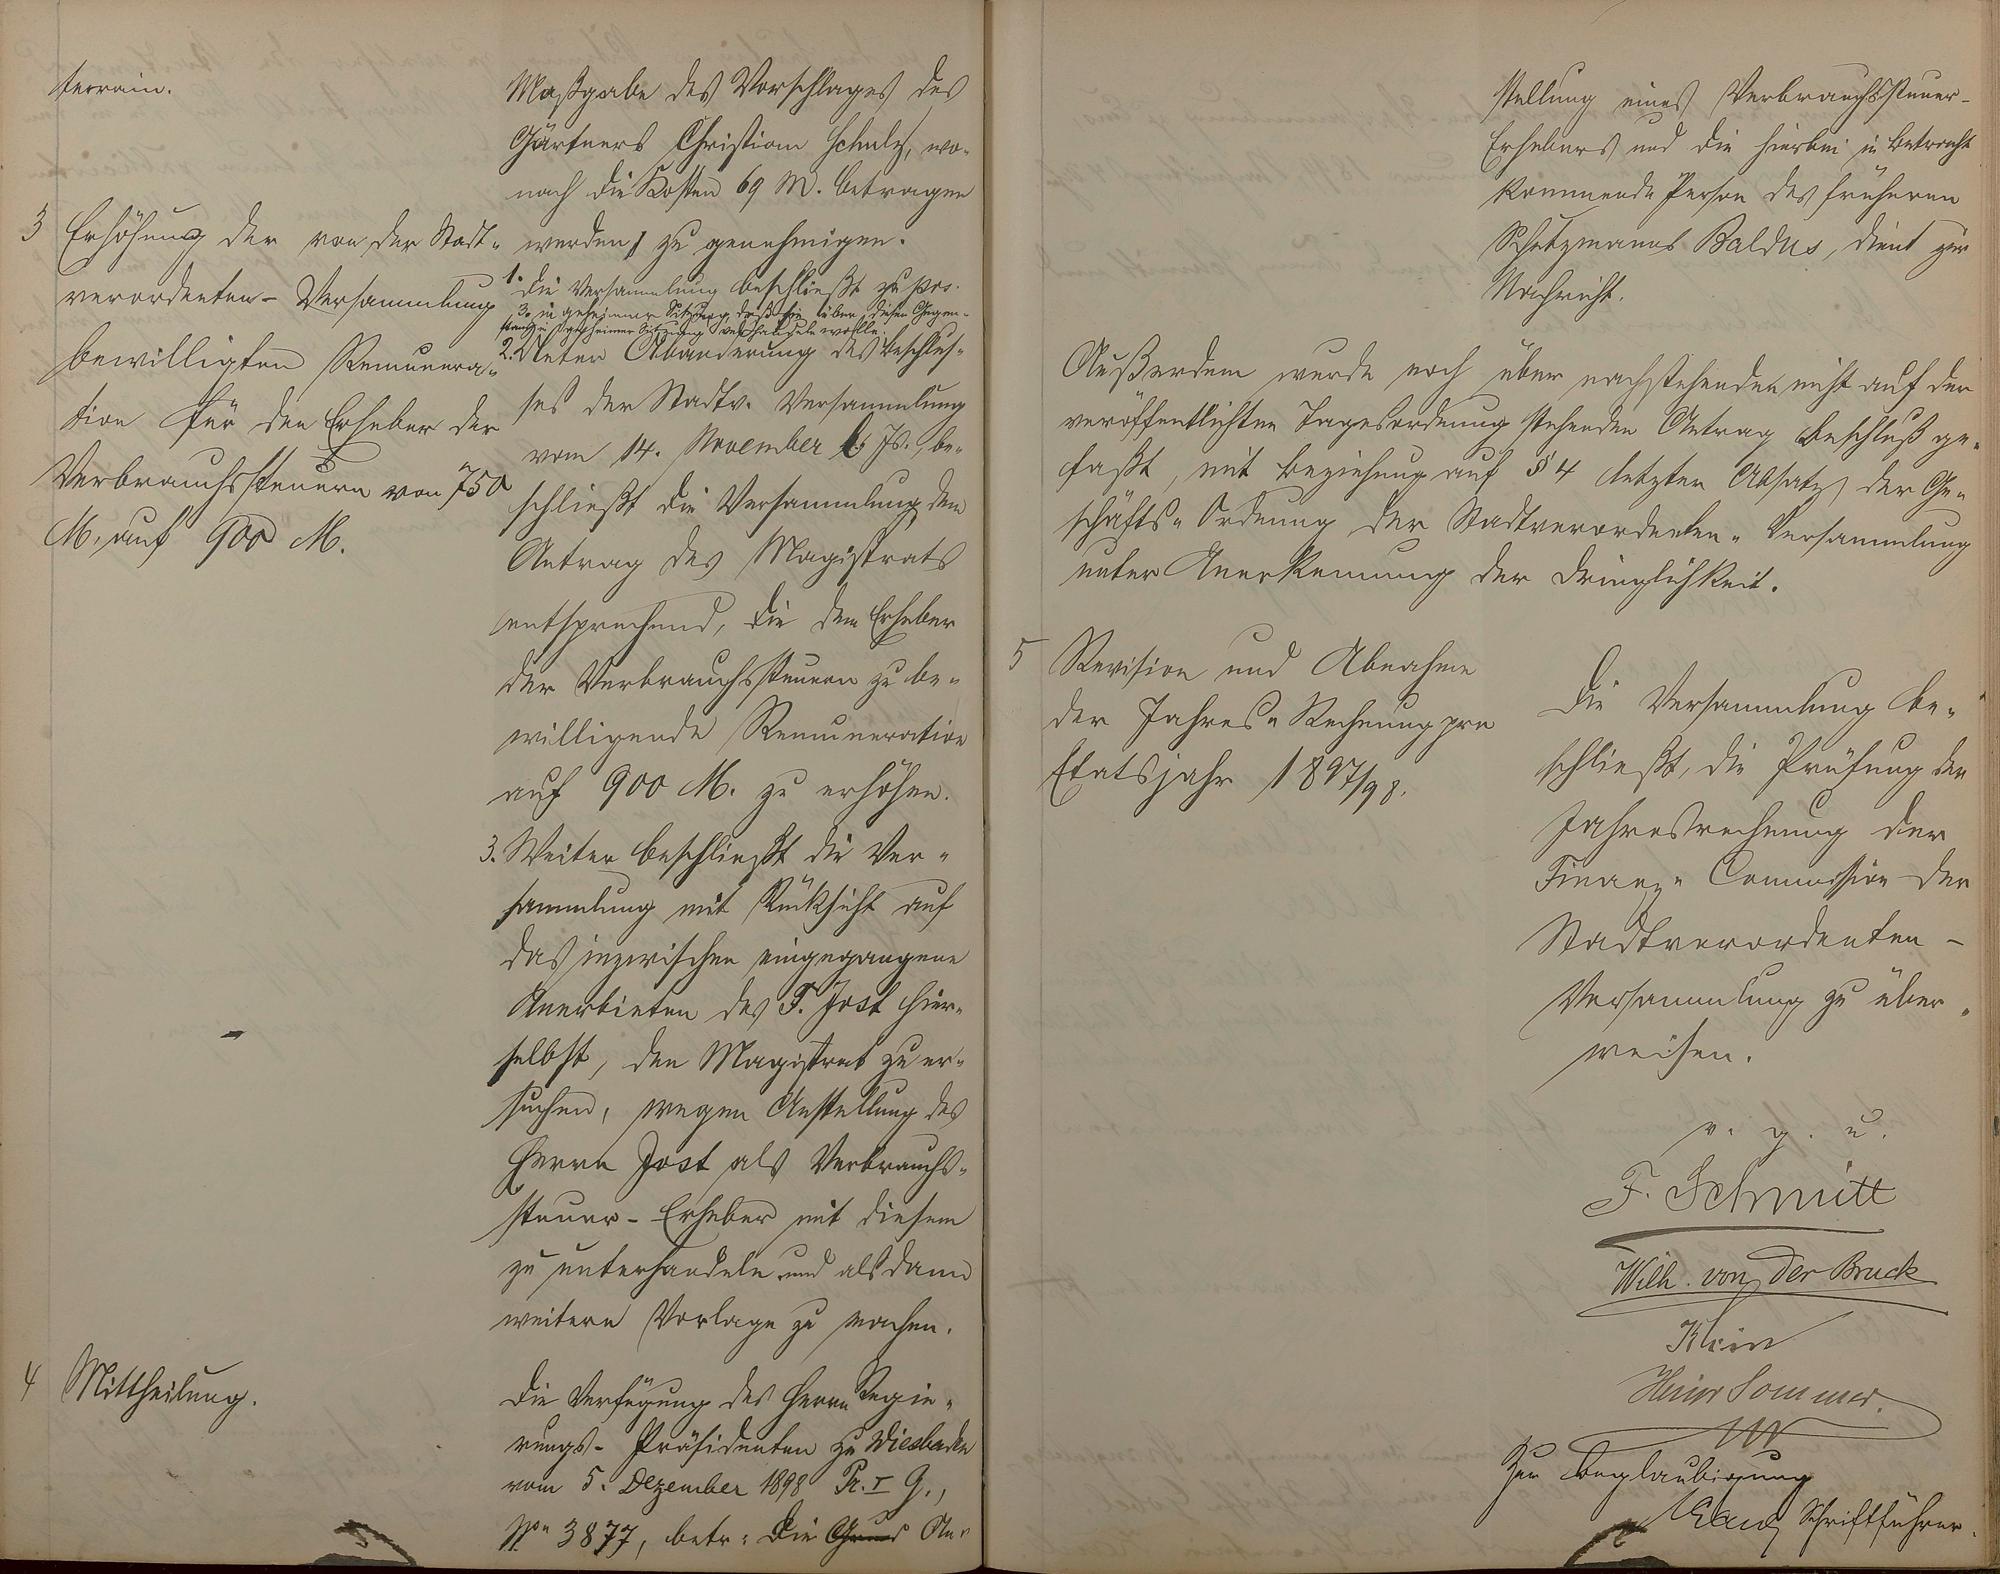 terrain.
Maßgabe des Vorschlages des
Gärtners Christian Schulz, wo-
nach die Kosten 69 M. betragen
werden, zu genehmigen.
3 Erhöhung der von der Stadt-
verordneten-Versammlung
bewilligten Remunera-
tion für den Erheber der
Verbrauchssteuern von 750
M. auf 900 M.
1. Die Versammlung beschließt zu pos.
3. in geheimer Sitzung, daß sie über diesen Gegen-
stand in geheimer Sitzung verhandeln wolle.
2. Unter Abänderung des Beschlus-
ses der Stadtv. Versammlung
vom 14. November d. Js., be-
schließt die Versammlung dem
Antrag des Magistrats
entsprechend, die dem Erheber
der Verbrauchssteuern zu be-
willigende Remuneration
auf 900 M. zu erhöhen.
3. Weiter beschließt die Ver-
sammlung mit Rücksicht auf
das inzwischen eingegangene
Anerbieten des F. Jost hier-
selbst, den Magistrat zu er-
suchen, wegen Anstellung des
Herrn Jost als Verbrauchs-
steuer-Erheber mit diesem
zu unterhandeln und alsdann
weitere Vorlage zu machen.
4 Mittheilung.
Die Verfügung des Herrn Regie-
rungs-Präsidenten zu Wiesbaden
vom 5. Dezember 1898 Pr. I G.,
No. 3877, betr: Die An-
stellung eines Verbrauchssteuer-
Erhebers und die hierbei in Betracht
kommende Person des früheren
Schutzmanns Baldus, dient zur
Nachricht.
Außerdem wurde noch über nachstehenden nicht auf der
veröffentlichten Tagesordnung stehenden Antrag Beschluß ge-
faßt, mit Beziehung auf § 4 letzter Absatz der Ge-
schäfts-Ordnung der Stadtverordneten-Versammlung
unter Anerkennung der Dringlichkeit.
5 Revision und Abnahme
der Jahres-Rechnung pro
Etatsjahr 1897/98.
Die Versammlung be-
schließt, die Prüfung der
Jahresrechnung der
Finanz-Commission der
Stadtverordneten-
Versammlung zu über-
weisen.
v. g. u.
F. Schmitt
Wilh. von der Bruck
Klein
Heinr Sommer.
Zur Beglaubigung
Schriftführer.